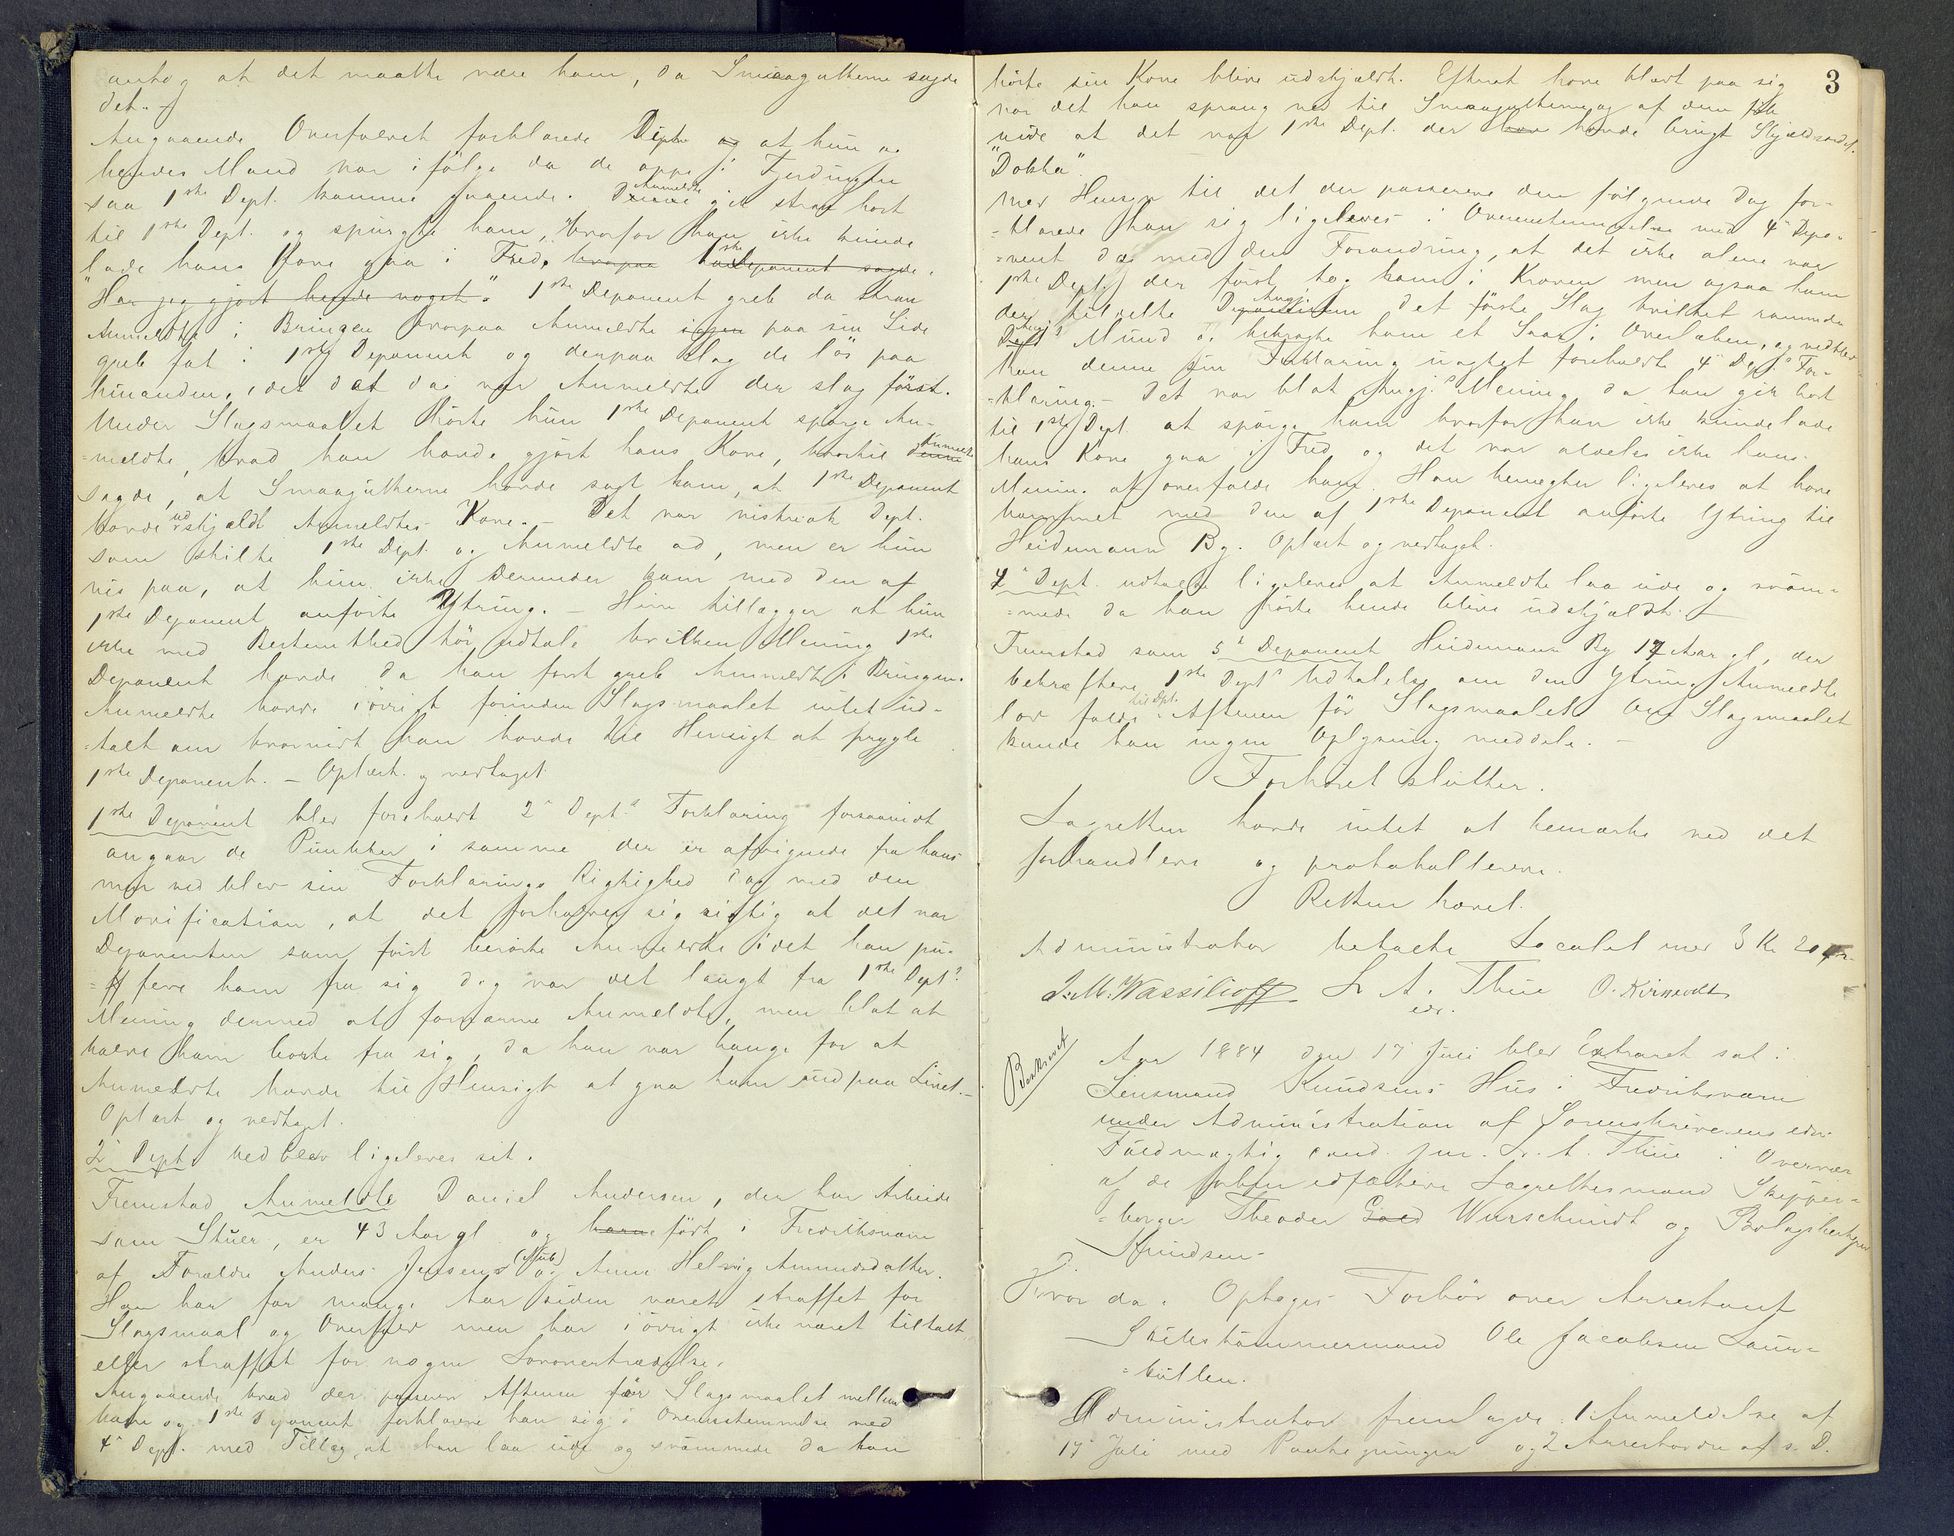 antog at det maatte være ham, da Smaagutterne sagde
det.
Angaaende Overfaldet forklarede Dept. at hun og
hendes Mand var i følge da de oppe i Fjerdingen
saa 1ste Dept. komme gaaende. Anmeldte gik strax bort
til 1ste Dept. og spurgte ham, hvorfor han ikke kunde
lade hans Kone gaa i Fred, hvorpaa 1ste Deponent sagde:
"Har jeg gjort hende noget". 1ste Deponent greb da strax
Anmeldte i Bringen hvorpaa Anmeldte igjen paa sin Side
greb fat i 1ste Deponent og derpaa slog de løs paa
hinanden, idet dat da var Anmeldte der slog først.
Under Slagsmaalet hørte hun 1ste Deponent spørge An-
=meldte, hvad han havde gjort hans Kone, hvortil denne Anmeldte
sagde, at Smaagutterne havde sagt ham, at 1ste Deponent
havde udskjældt Anmeldtes Kone. – Det var vistnok Dept.
som skilte 1ste Dept. og Anmeldte ad, men er hun
vis paa, at hun ikke derunder kom med den af
1ste Deponent anførte Ytring. – Hun tillægger at hun
ikke med Bestemthed tør udtale hvilken Mening 1ste
Deponent havde da han først greb Anmeldte i Bringen.
Anmeldte havde iøvrigt forinden Slagsmaalet intet ud-
=talt om hvorvidt han havde til Hensigt at prygle
1ste Deponent. – Oplæst og vedtaget.
1ste Deponent blev foreholdt 2den Dept.s Forklaring forsaavidt
angaar de Punkter i samme der er afvigende fra hans
men vedblev sin Forklarings Rigtighed dog med den
Modification, at det forholder sig rigtig at det var
Deponenten som først berørte Anmeldte idet han pu-
=ffede ham fra sig dog var det langt fra 1ste Dept.s
Mening dermed at fornærme Anmeldte, men blot at
holde ham borte fra sig, da han var bange for at
Anmeldte havde til Hensigt at gaa ham ind paa Livet. –
Oplæst og vedtaget.
2den Dept. vedblev ligeledes sit.
Fremstod Anmeldte Daniel Andersen, der har Arbeide
som Stuer, er 43 Aar gl. og barnefødt i Fredriksværn
af Forældre Anders Jensen (Aub) og Anne Helvig Amundsdatter.
Han har for mange Aar siden været straffet for
Slagsmaal og Overfald men har iøvrigt ikke været tiltalt
eller straffet for nogen Lovovertrædelse.
Angaaende hvad der passerede Aftenen før Slagsmaalet mellem
ham og 1ste Deponent forklarede han sig i Overensstemmelse med
4de Dept. med Tillæg, at han laa ude og svømmede da han
3
hørte sin Kone blive udskjældt. Efterat have klædt paa sig
var det han sprang ned til Smaagutterne og af dem fik
vide at det var 1ste Dept. der havde brugt Skjældsordet
"Dokka".
Med Hensyn til det der passerede den følgende Dag for-
=klarede han sig ligeledes i Overensstemmelse med 4de Depo-
=nent dog med den Forandring, at det ikke alene var
1ste Dept. der først tog ham i Kraven men ogsaa ham
der tildelte Deponenten Angj. det første Slag hvilket rammede
Dept.s Angj.s Mund og bibragte ham et Saar i Overlæben, og vedblev
han denne sin Forklaring uagtet foreholdt 4de Dept.s For-
=klaring. – Det var blot Angj.s Mening da han gik bort
til 1ste Dept. at spørge ham hvorfor han ikke kunde lade
hans Kone gaa i Fred og det var aldeles ikke hans
Mening at overfalde ham. Han benegter ligeledes at have
kommet med den af 1ste Deponent anførte Ytring til
Heidemann By. Oplæst og vedtaget.
4de Dept. udtaler ligeledes at Anmeldte laa ude og svøm-
=mede da han hørte hende blive udskjældt.
Fremstod som 5te Deponent Heidemann By 17 Aar gl., der
bekræftede 1ste Dept.s Udtalelse om den Ytring Anmeldte
lod falde til Dept. Aftenen før Slagsmaalet. Om Slagsmaalet
kunde han ingen Oplysning meddele. –
Forhøret sluttet.
Lagretten havde intet at bemærke ved det
forhandlede og protokollerede.
Retten hævet.
Administrator betalte Localet med 3 Kr 20 Øre.
J. M. Wassilioff L. A. Thue O. Kirsevedt
edr.
Beskrevet
Aar 1884 den 17 Juli blev Extraret sat i
Lensmand Knudsens Hus i Fredriksværn
under Administration af Sorenskriverens edsv.
Fuldmægtig cand. jur. L. A. Thue i Overvær
af de forhen edfæstede Lagrettesmænd Skipper-
=borger Theodor Gaed Wurschmidt og Bolagsbestyrer
Knudsen –
Hvor da: Optoges Forhør over Arrestant
Skibstømmermand Ole Jacobsen Laur-
=kullen.
Administrator fremlagde 1 Anmeldelse af
17 Juli med Paategninger og 2 Arrestordre af s. D.